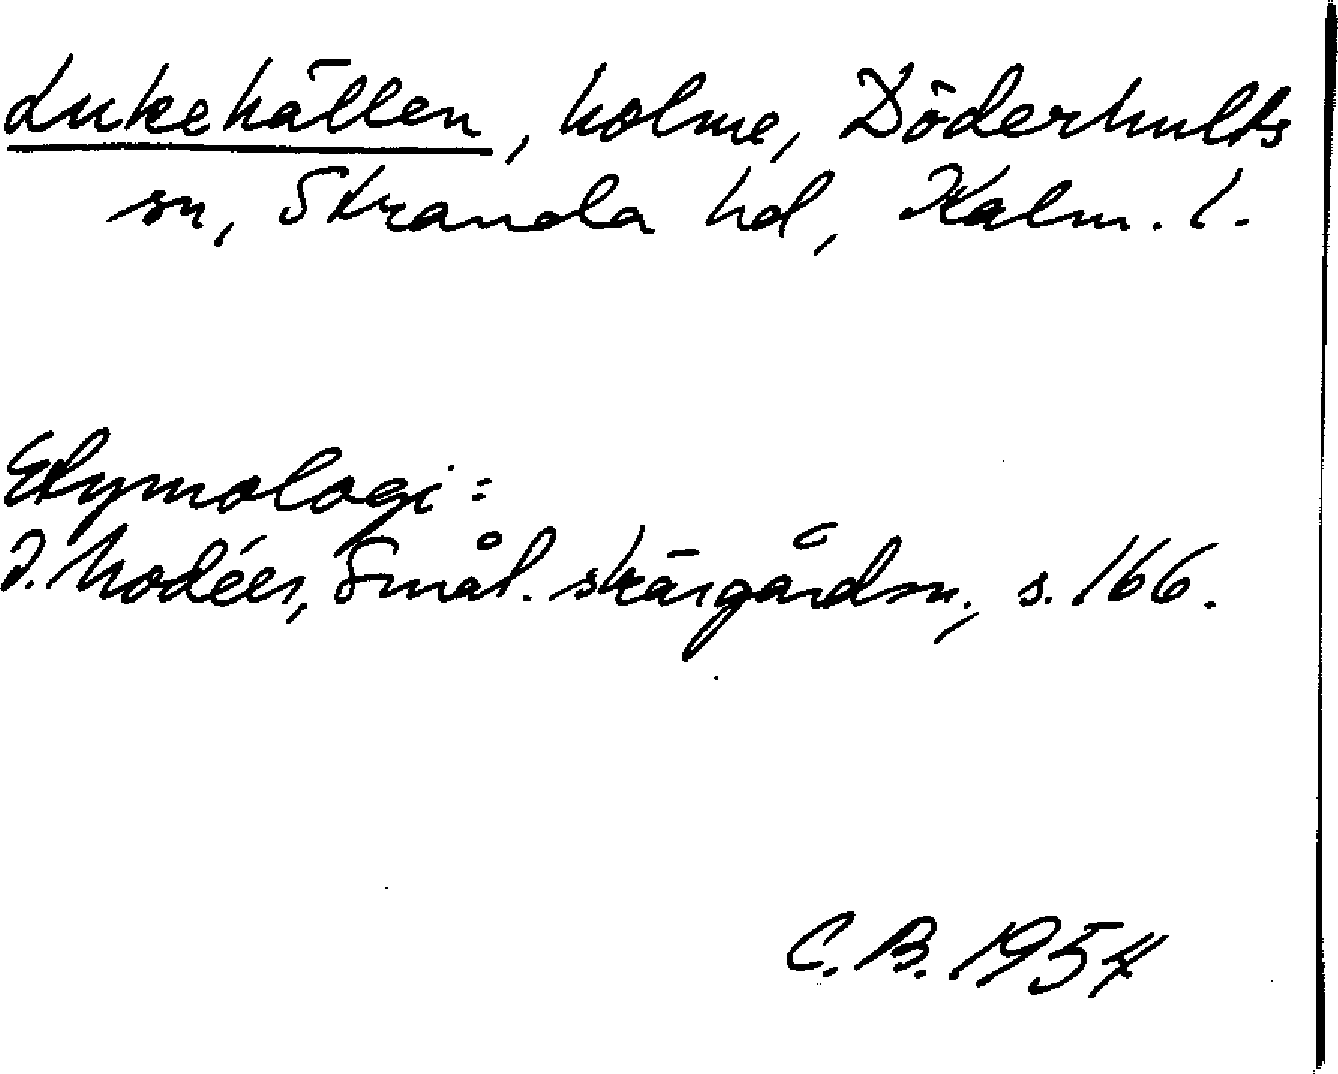 Lukehällen, holme, Döderhults
sn, Stranda hd, Kalm. l.
Etymologi:
I. Modéer, Smål. skärgårdsn., s. 166.
C. B. 1954